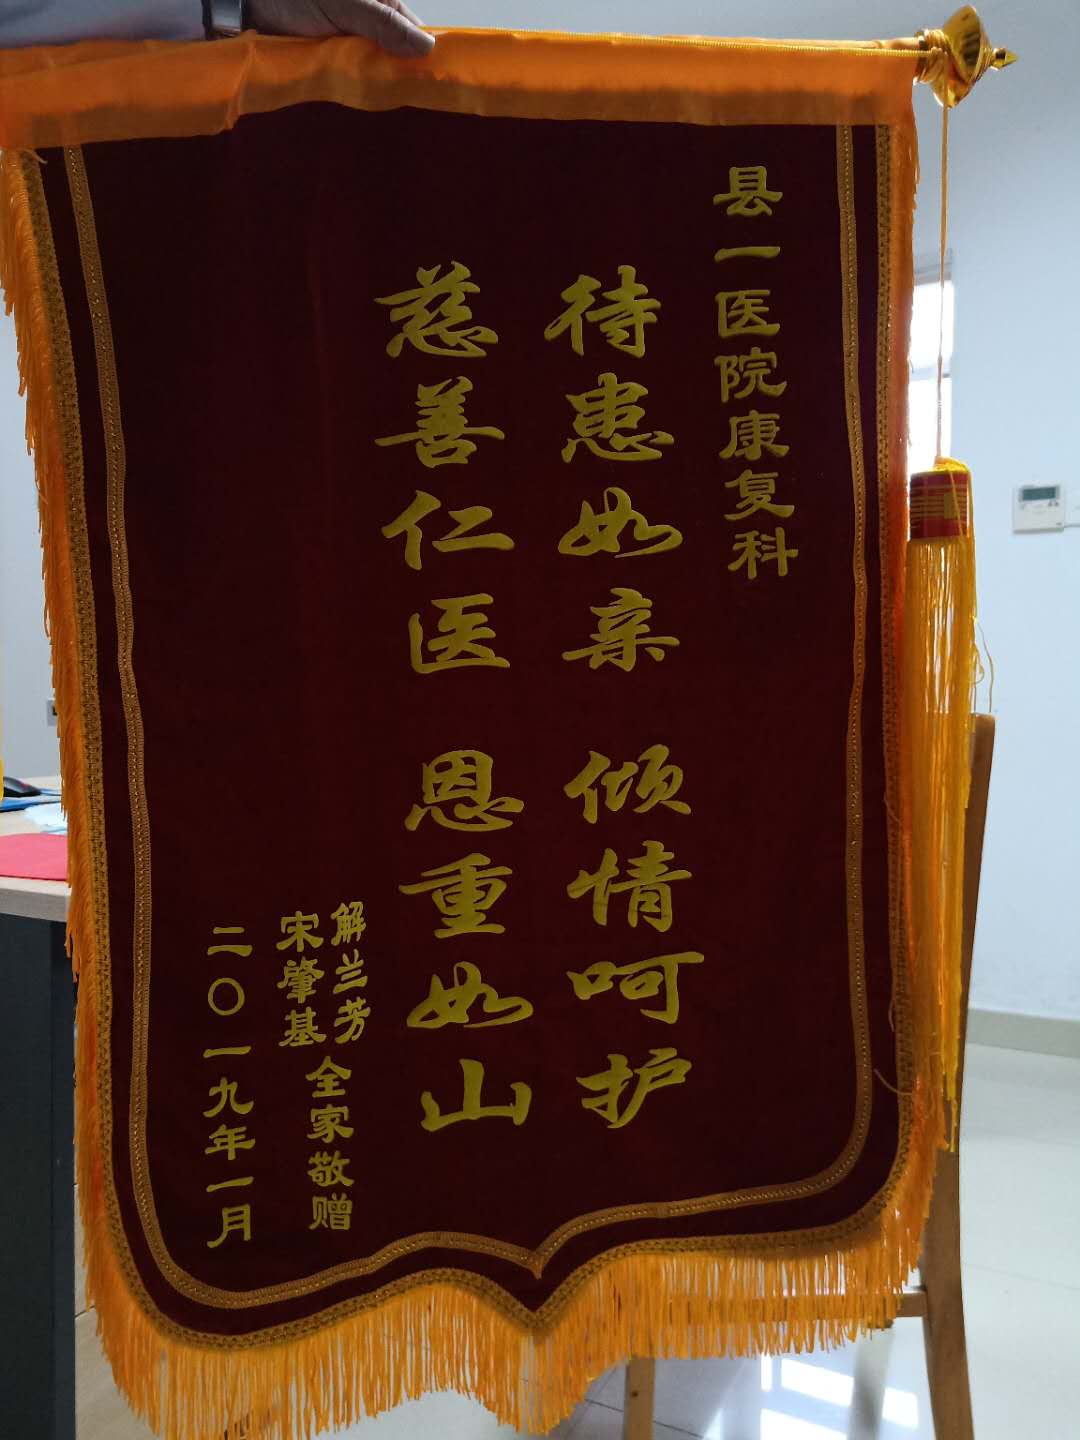 县一医院康复科
待患如亲 倾情呵护
慈善仁医 恩重如山
解兰芳
宋肇基
全家敬赠
二〇一九年一月